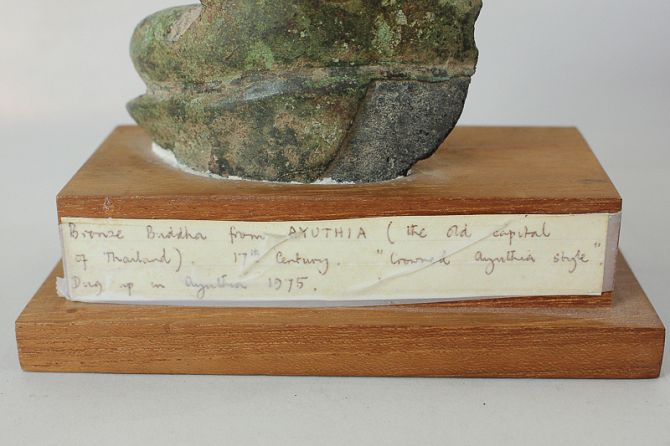 Bronze Buddha from AYUTHIA ( the old capital
of Thailand). 17th Century. "Crowned Ayuthia style".
Dug up in Ayuthia 1975.